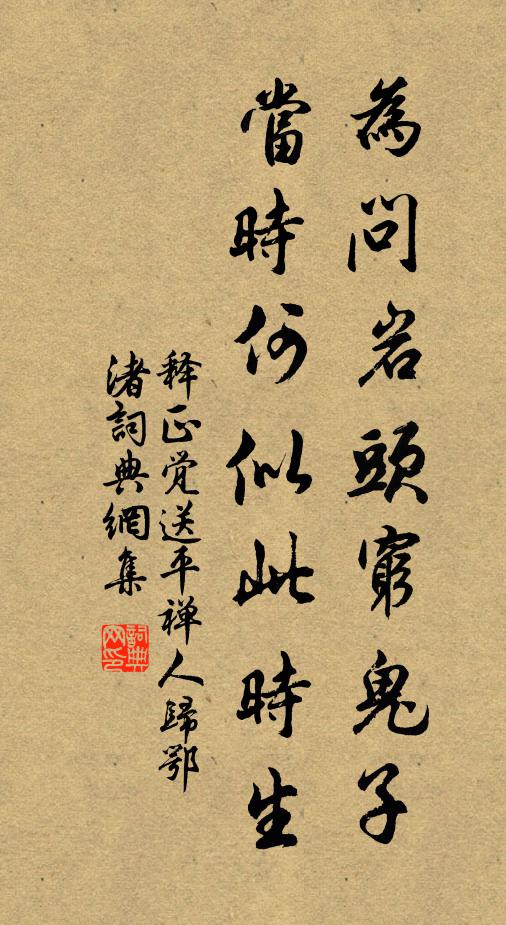 為問岩頭窮鬼子
當時何似此時生
释正觉送平禅人歸鄂
渚詞典網集
詞典网印